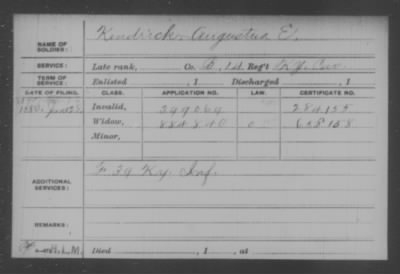 NAME OF SOLDIER: Kendrick, Augustus E.
SERVICE: Late rank, Co. B, 1st Reg't Ky. Cav.
TERM OF SERVICE: Enlisted , 1 Discharged , 1
DATE OF FILING. CLASS. APPLICATION NO. LAW. CERTIFICATE NO.
1880, Invalid, 399069 284155
Widow, 884840 658158
Minor,
ADDITIONAL SERVICES: F 39 Ky. Inf.
REMARKS:
Died , 1 , at